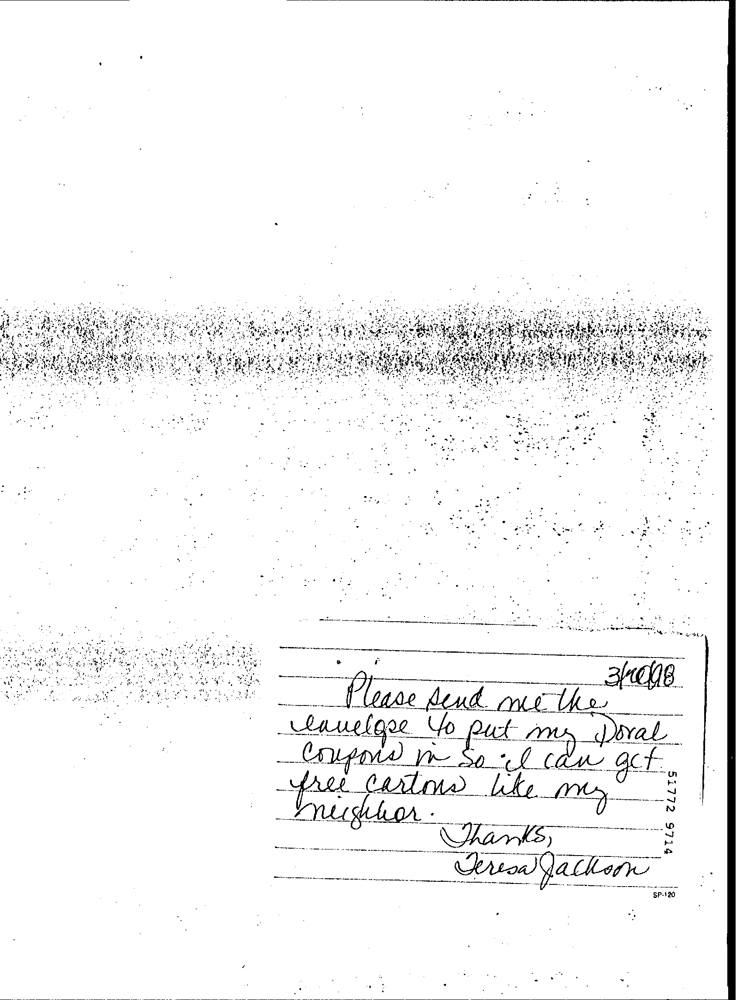 3/10/98
Please send me the
envelope to put my Doral
Coupons in so I can get
free cartons like my
neighbor.
Thanks,
Teresa Jackson
51772 9714
SP-120